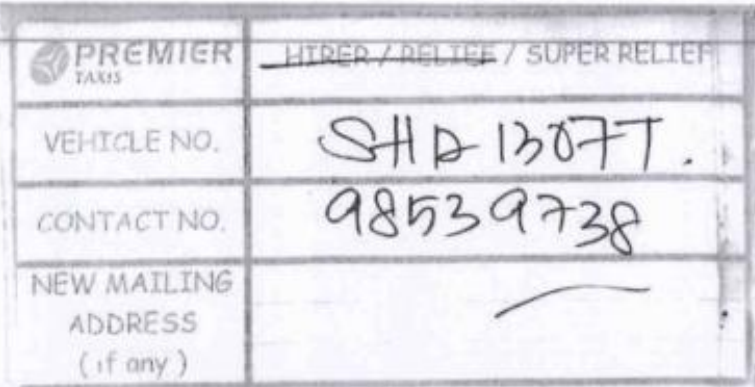 PREMIER
TAXIS
HIRER / RELIEF / SUPER RELIEF
VEHICLE NO.
SHD 1307T.
CONTACT NO.
98539738
NEW MAILING
ADDRESS
(if any)